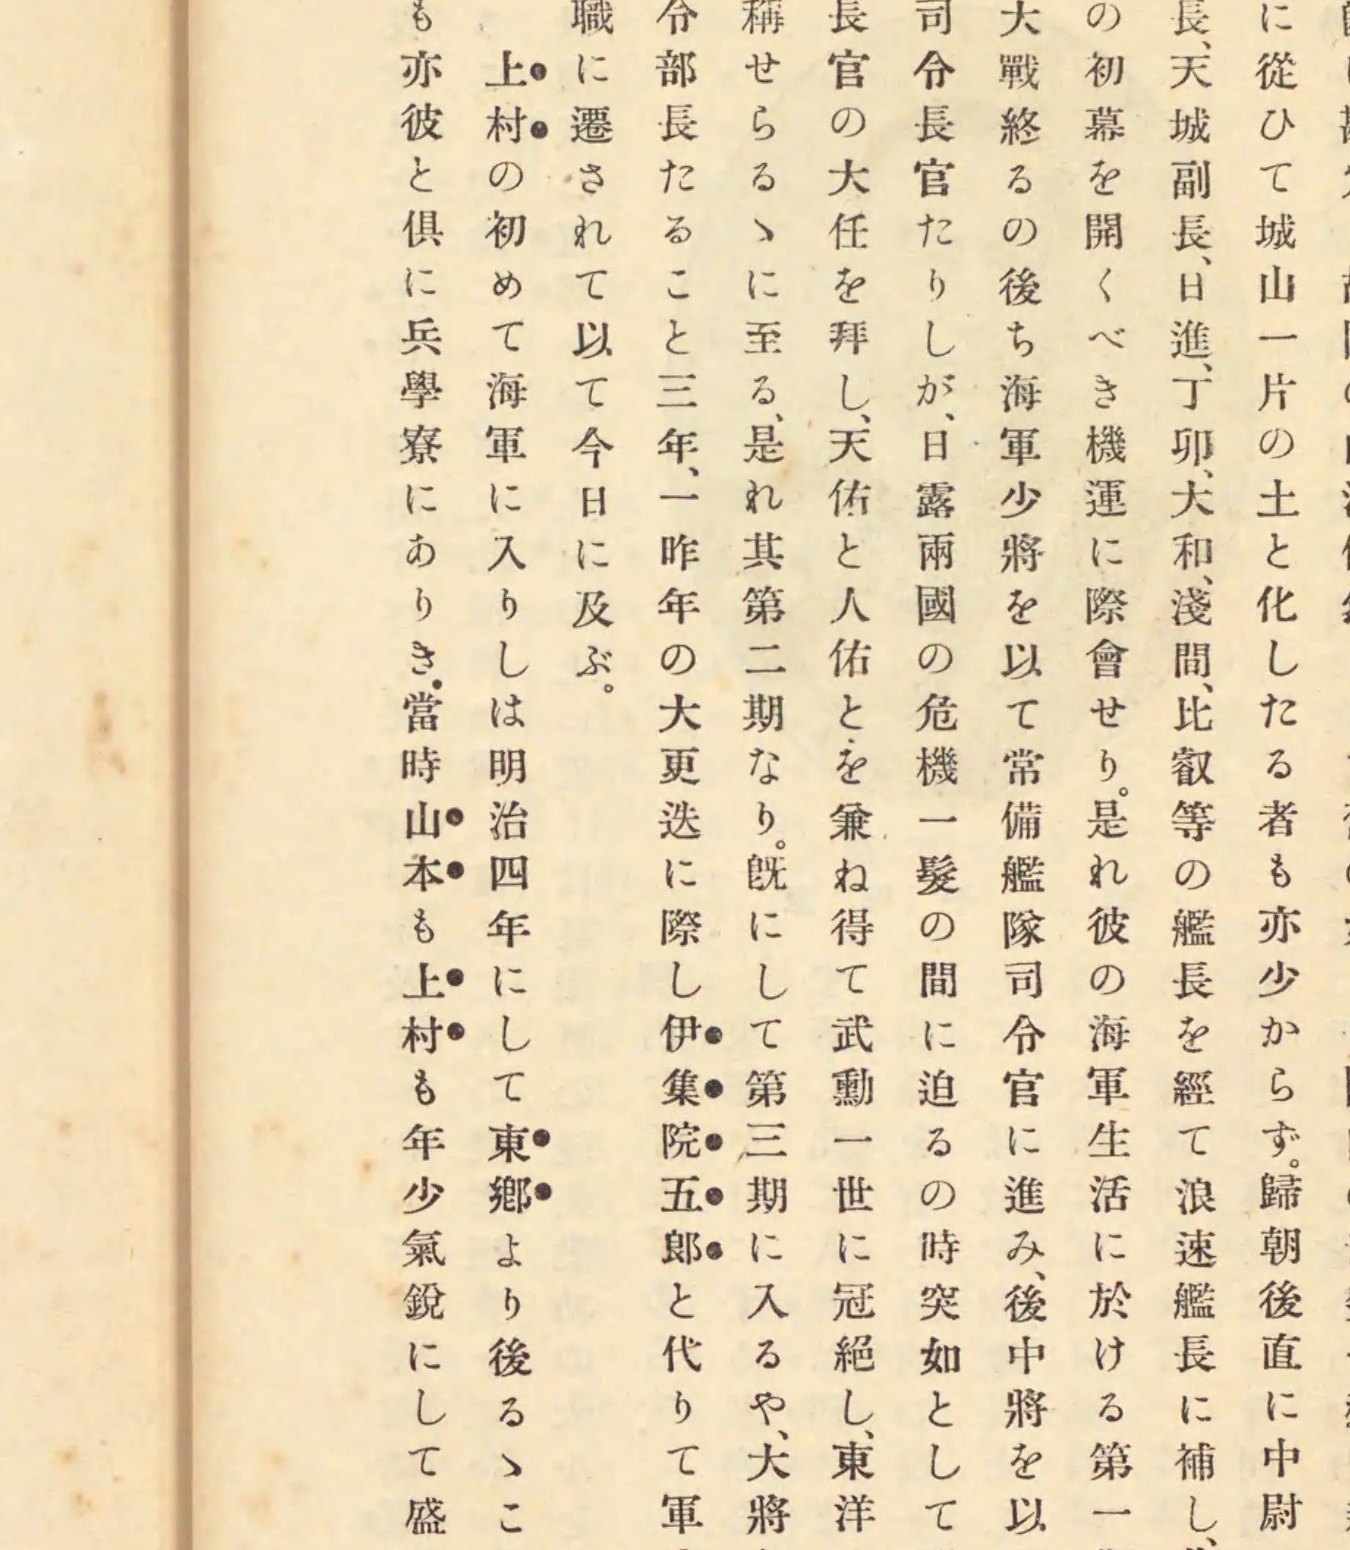 に從ひて城山一片の土と化したる者も亦少からず。歸朝後直に中尉
長、天城副長、日進、丁卯、大和、淺間、比叡等の艦長を經て浪速艦長に補し、
の初幕を開くべき機運に際會せり。是れ彼の海軍生活に於ける第一
大戰終るの後ち海軍少將を以て常備艦隊司令官に進み、後中將を以
司令長官たりしが、日露兩國の危機一髮の間に迫るの時突如として
長官の大任を拜し、天佑と人佑とを兼ね得て武勳一世に冠絕し、東洋
稱せらるゝに至る、是れ其第二期なり。既にして第三期に入るや、大將
令部長たること三年、一昨年の大更迭に際し伊集院五郎と代りて軍
職に遷されて以て今日に及ぶ。
上村の初めて海軍に入りしは明治四年にして東鄕より後るゝこ
も亦彼と倶に兵學寮にありき。當時山本も上村も年少氣銳にして盛